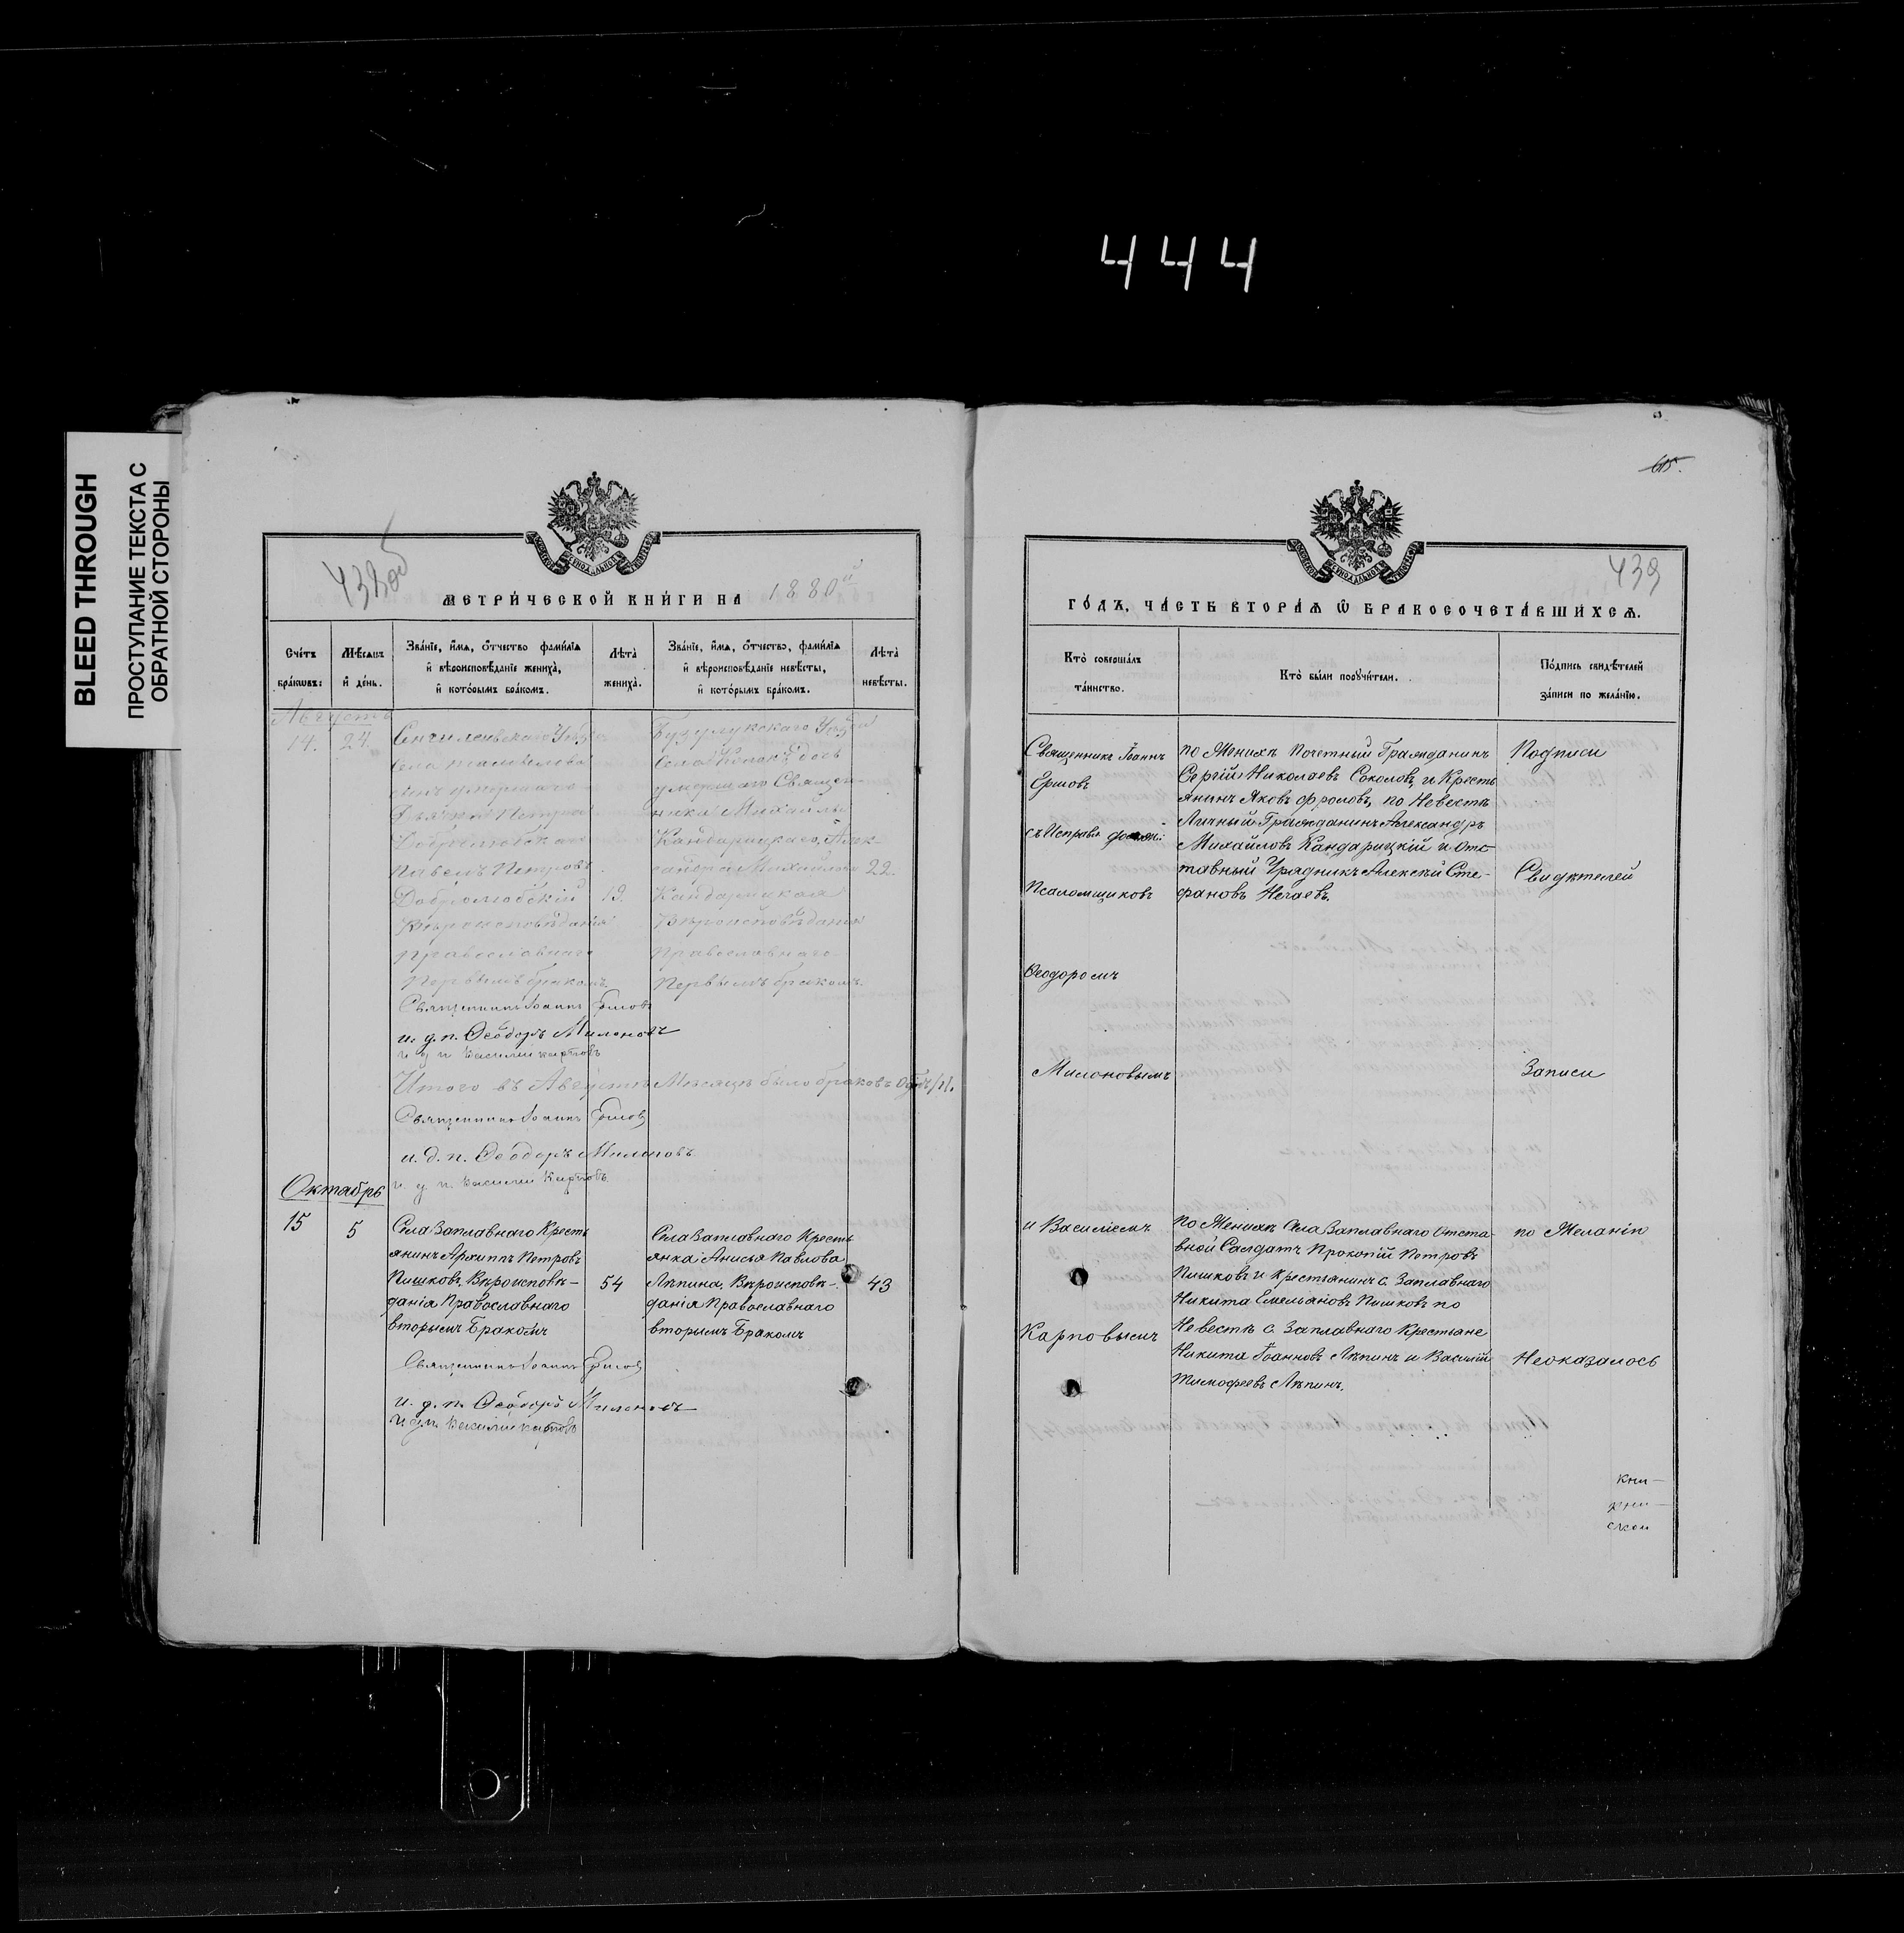 444
BLEED THROUGH
ПРОСТУПАНИЕ ТЕКСТА С
ОБРАТНОЙ СТОРОНЫ
438об
МЕТРИ́ЧЕСКОЙ КНИ́ГИ НА 1880ый
Сче́тъ бра́кѡвъ:
Мѣ́сяцъ и҆ де́нь.
Зва́нїе, и҆́мѧ, ѻ҆́тчество фами́лїѧ и҆ вѣроисповѣ́данїе жениха̀, и҆ кото́рымъ бра́комъ.
Лѣ́та жениха̀.
Зва́нїе, и҆́мѧ, ѻ҆́тчество, фами́лїѧ и҆ вѣроисповѣ́данїе невѣ́сты, и҆ кото́рымъ бра́комъ.
Лѣ́та невѣ́сты.
Августъ
14. 24.
Сенгилеевскаго Уѣзда
Села
сынъ умершаго
Петра
Добролюбскаго
Павелъ Петровъ
Добролюбскій 19.
Вѣроисповѣданія
Православнаго
Первымъ бракомъ
Бузулукскаго Уѣзда
Села
умершаго Священ-
ника Михайлы
Кандарицкаго, Алек-
сандра Михайлова 22.
Кандарицкая
Вѣроисповѣданія
Православнаго
Первымъ бракомъ.
Священникъ Іоаннъ Ершовъ
и. д. п. Ѳеодоръ Милоновъ
и д п Василий Карповъ
Итого въ Августѣ Мѣсяцѣ было браковъ одинъ /1/.
Священникъ Іоаннъ Ершовъ
и. д. п. Ѳеодоръ Милоновъ
и д п Василий Карповъ
Октябрь
15 5
Села Заплавнаго Кресть
янинъ Архиппъ Петровъ
Пишковъ, Вѣроисповѣ-
данія Православнаго
вторымъ Бракомъ
54
Села Заплавнаго Кресть
янка Анисья Павлова
Лѣпина, Вѣроисповѣ-
данія Православнаго
вторымъ Бракомъ
43
Священникъ Іоаннъ Ершовъ
и. д. п. Ѳеодоръ Милоновъ
и д п Василий Карповъ
615.
439
ГО́ДЪ, ЧА́СТЬ ВТОРА́Ѧ Ѽ БРАКОСОЧЕТА́ВШИХСѦ.
Кто̀ соверша́лъ та́инство.
Кто̀ бы́ли порꙋчи́тели.
По́дпись свидѣ́телей за́писи по жела́нїю.
Священникъ Іоаннъ
Ершовъ
съ Исправл.
Псаломщиковъ
Ѳеодоромъ
Милоновымъ
по Женихѣ Почетный Гражданинъ
Сергій Николаевъ Соколовъ, и Кресть
янинъ Яковъ Фроловъ, по Невестѣ
Личный Гражданинъ Александръ
Михайловъ Кандарицкій и Отс-
тавный Урядникъ Алексѣй Сте-
фановъ Нечаевъ.
Подписи
Свидѣтелей
Записи
и Василіемъ
Карповымъ
по Женихѣ Села Заплавнаго Отста
вной Салдатъ Прокопій Петровъ
Пишковъ и крестьянинъ с. Заплавнаго
Никита Емельяновъ Пишковъ по
Невестѣ с. Заплавнаго Крестьяне
Никита Іоанновъ Лѣпинъ и Василій
Тимофеевъ Лѣпинъ.
по Желанію
Неоказалось